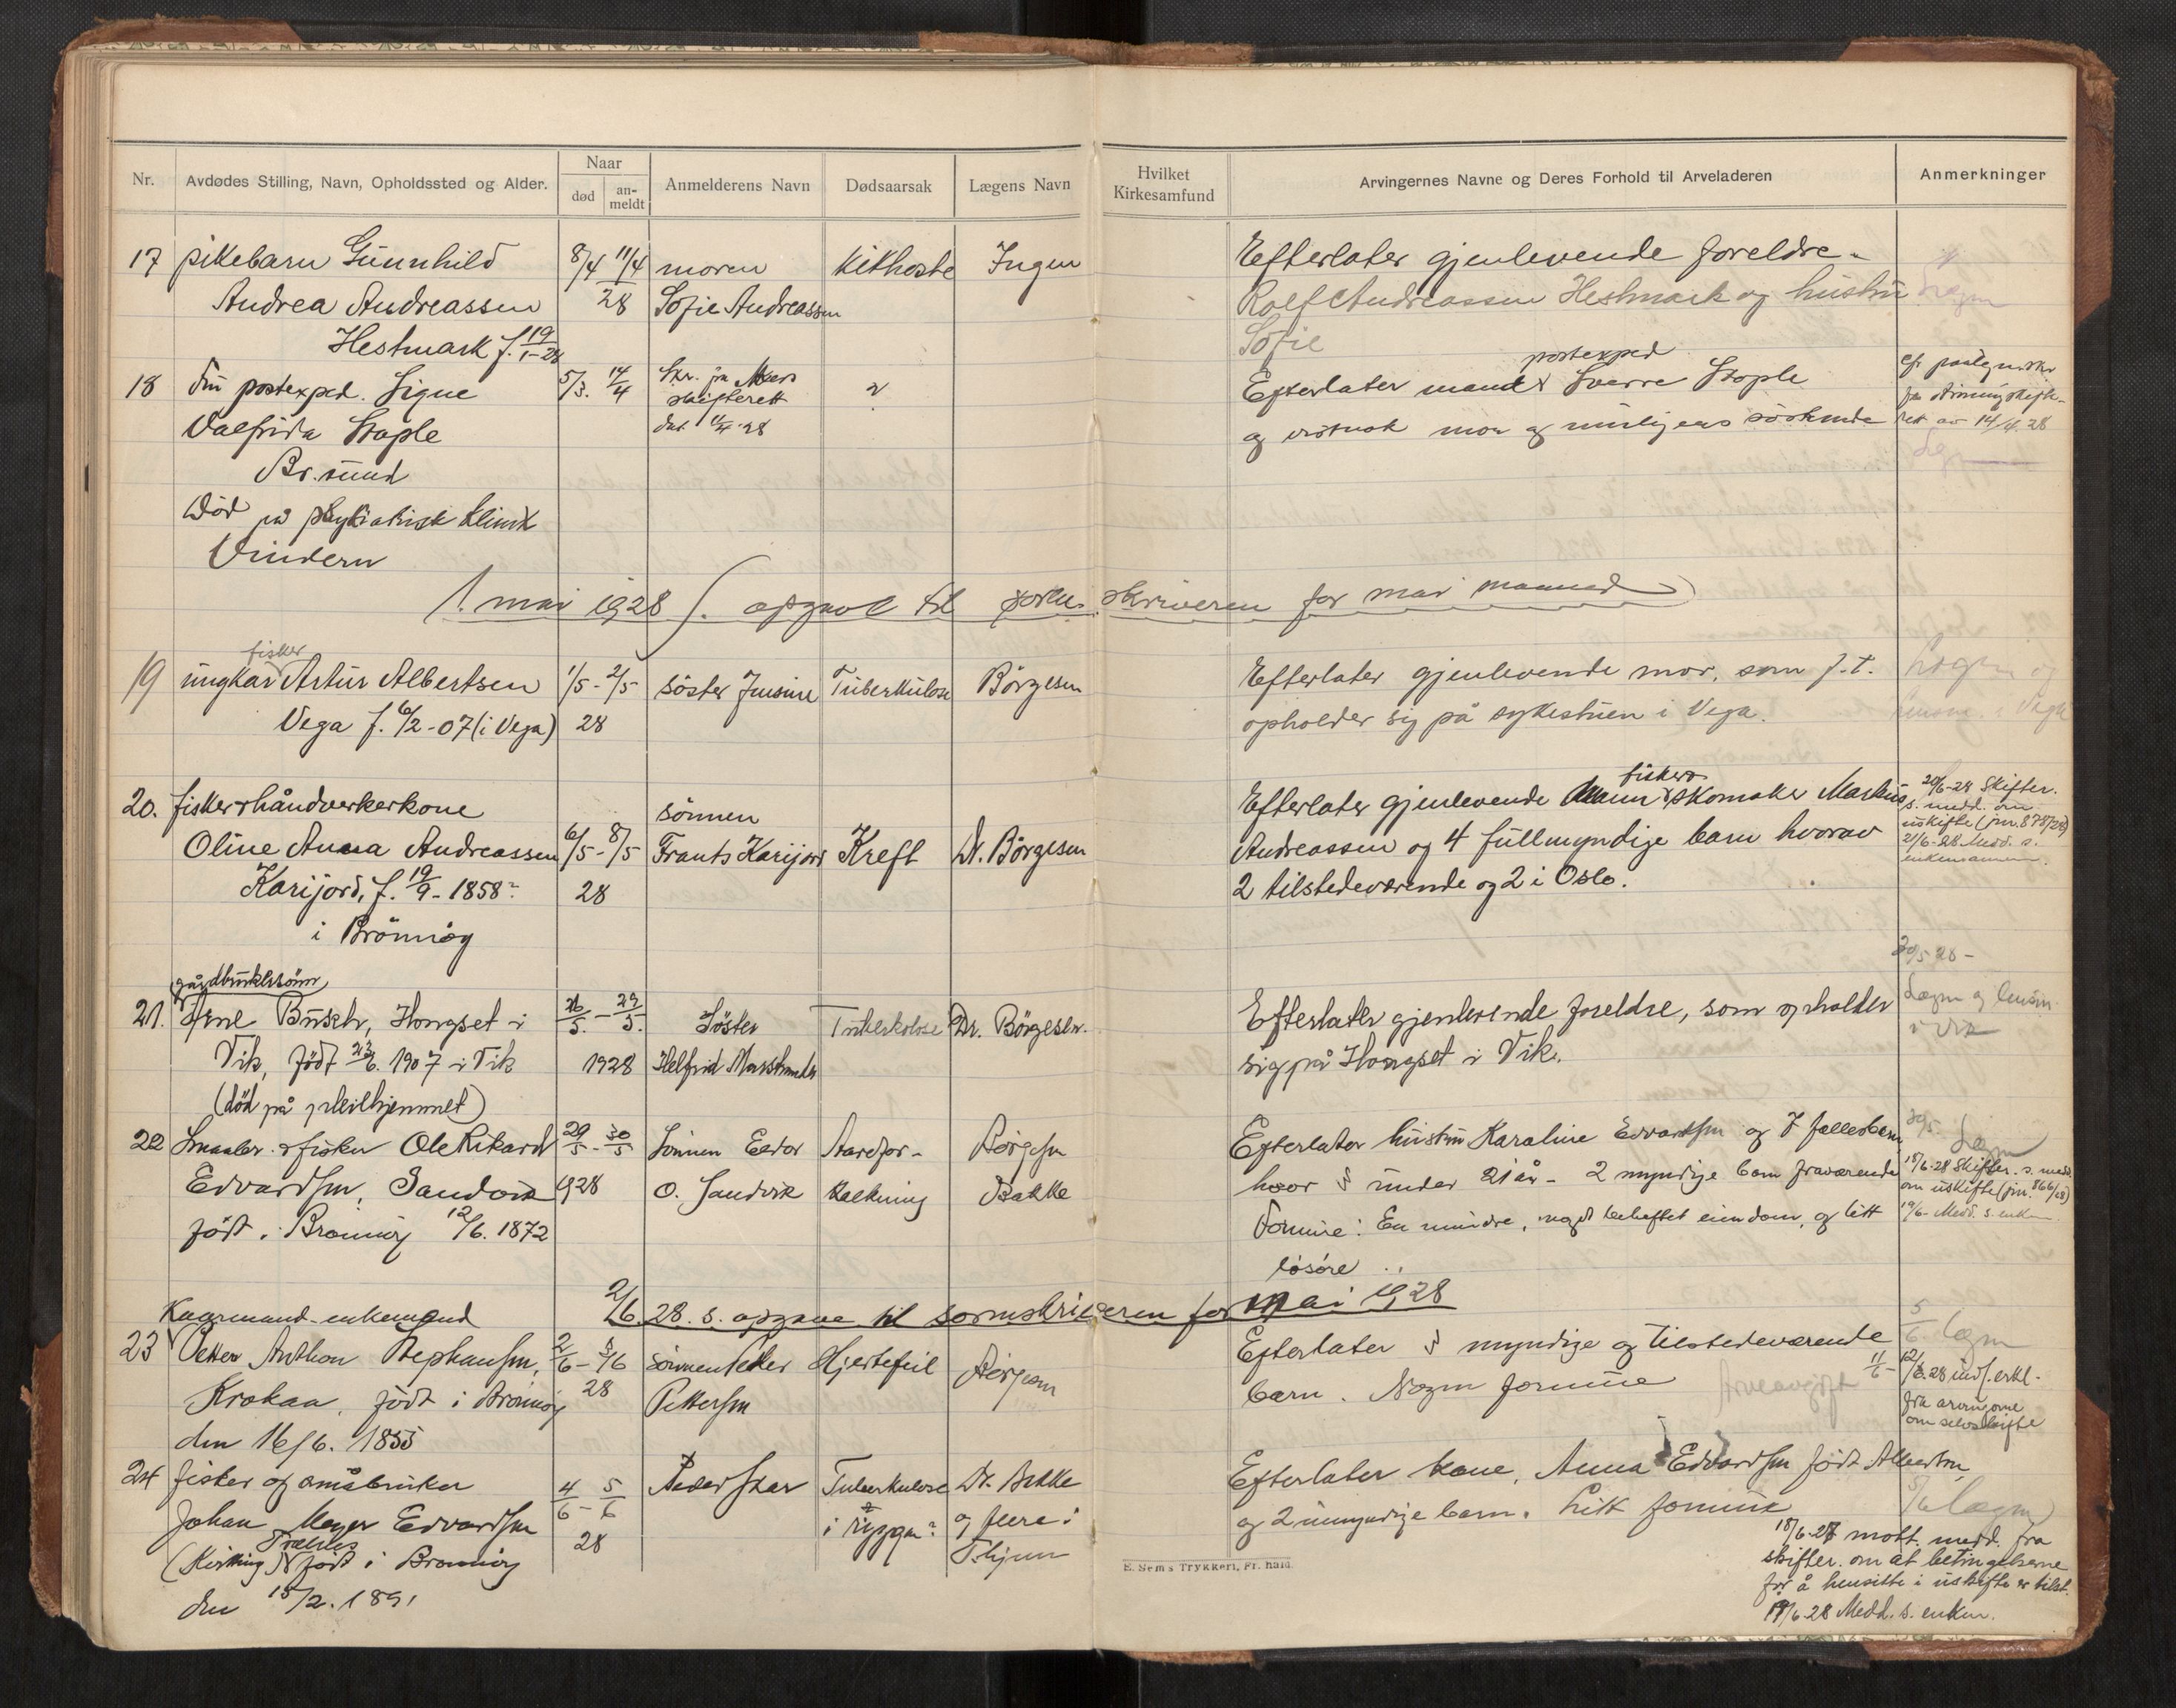 Nr.
Avdødes Stilling, Navn, Opholdssted og Alder.
Naar
død
an-
meldt
Anmelderens Navn
Dødsaarsak
Lægens Navn
Hvilket
Kirkesamfund
Arvingernes Navne og Deres Forhold til Arveladeren
Anmerkninger
17 pikebarn Gunnhild 8/4 11/4 moren kikhoste Ingen Efterlater gjenlevende foreldre
Andrea Andreassen 28 Sofie Andreassen Rolf Andreassen Hestmark og hustru
Hestmark f. 19/1-28 Sofie
18 fru postexped. Signe 5/3. 14/4 Skr. fra Akers ? Efterlater mand postexped Sverre Stople
skifterett
Valfrida Stople dat. 11/4-28 og mor og muligens søskende ret av 14/4.28
Br.sund
Død på psykiatrisk klinik
Vindern
1. mai 1928 s. opgave til soren skriveren for mai maaned
fisker
19 ungkar Artur Albertsen 1/5 - 2/5 søster Tuberkulose Börgesen Efterlater gjenlevende mor, som f.t.
Vega f. 6/2-07 (i Vega) 28 opholder sig på sykestuen i Vega.
fisker &
20. fisker & håndverkerkone sønnen Efterlater gjenlevende Mann skomaker Markus
Oline Anna Andreassen 6/5 - 8/5 Frants Karijord Kreft Dr. Börgesen Andreassen og 4 fullmyndige barn hvorav
Karijord, f. 19/9-1858 28 2 tilstedeværende og 2 i Oslo.
i Brönnöy
20/6-28 Skifter.
s. medd. om
uskifte (jnr. 878/28)
21/6-28 Medd. s.
enkemannen.
30/5 28 -
gårdbrukersönn
21. Arne Busch, Hongset i 26/5. - 29/5. Söster Tuberkolose Dr. Börgesen. Efterlater gjenlevende foreldre, som opholder
Vik, född 23/6. 1907 i Vik 1928 Helfrid sig på Hongset i Vik.
(död på pleiehjemmet)
22 Smaabr. & fisker Ole Rikard 29/5 - 30/5 Sönnen Aarefor- Börgesen Efterlater hustru Karoline Edvardsen og 7 fellesbarn,
Edvardsen, Sandvik 1928 O. Sandvik kalkning Bakke hvor 5 under 21 år - 2 myndige barn fraværende
födt i Brönnöy 12/6. 1872 Formue: En mindre, noget beheftet eiendom, og litt
lösöre
30/5. Lægm
18/6-28 Skifter. s. medd.
om uskifte (jnr. 866/28)
19/6- Medd. s. enken
2/6.28. s. opgave til sorenskriveren for mai 1928
Kaarmand - enkemand
23 Petter Anthon Stephansen, 2/6 - 5/6 sönnen Peder Hjertefeil Börgesen Efterlater 5 myndige og tilstedeværende
Krokaa, födt i Brönnöy 28 Pettersen barn. Nogen formue arveavgift 11/6 -
den 16/6. 1855
5/6. lægm
12/6.28 inds. erkl.
fra arvingerne
om selvskifte
24 fisker og småbruker 4/6 - 5/6 Peder Skar Tuberkulose Dr. Bakke Efterlater kone, Anna Edvardsen födt Albertsen
Johan Meyer Edvardsen 28 i ryggen? og flere i og 2 umyndige barn. Litt formue
Trælnes
födt i Brönnöy
den 15/2. 1891
5/6 Lægm
18/6-28 mott. medd. fra
skifter. om at betingelserne
for å hensitte i uskifte er tilst.
19/6 28 Medd. s. enken.
E. Sem's Trykkeri, Fr.hald.